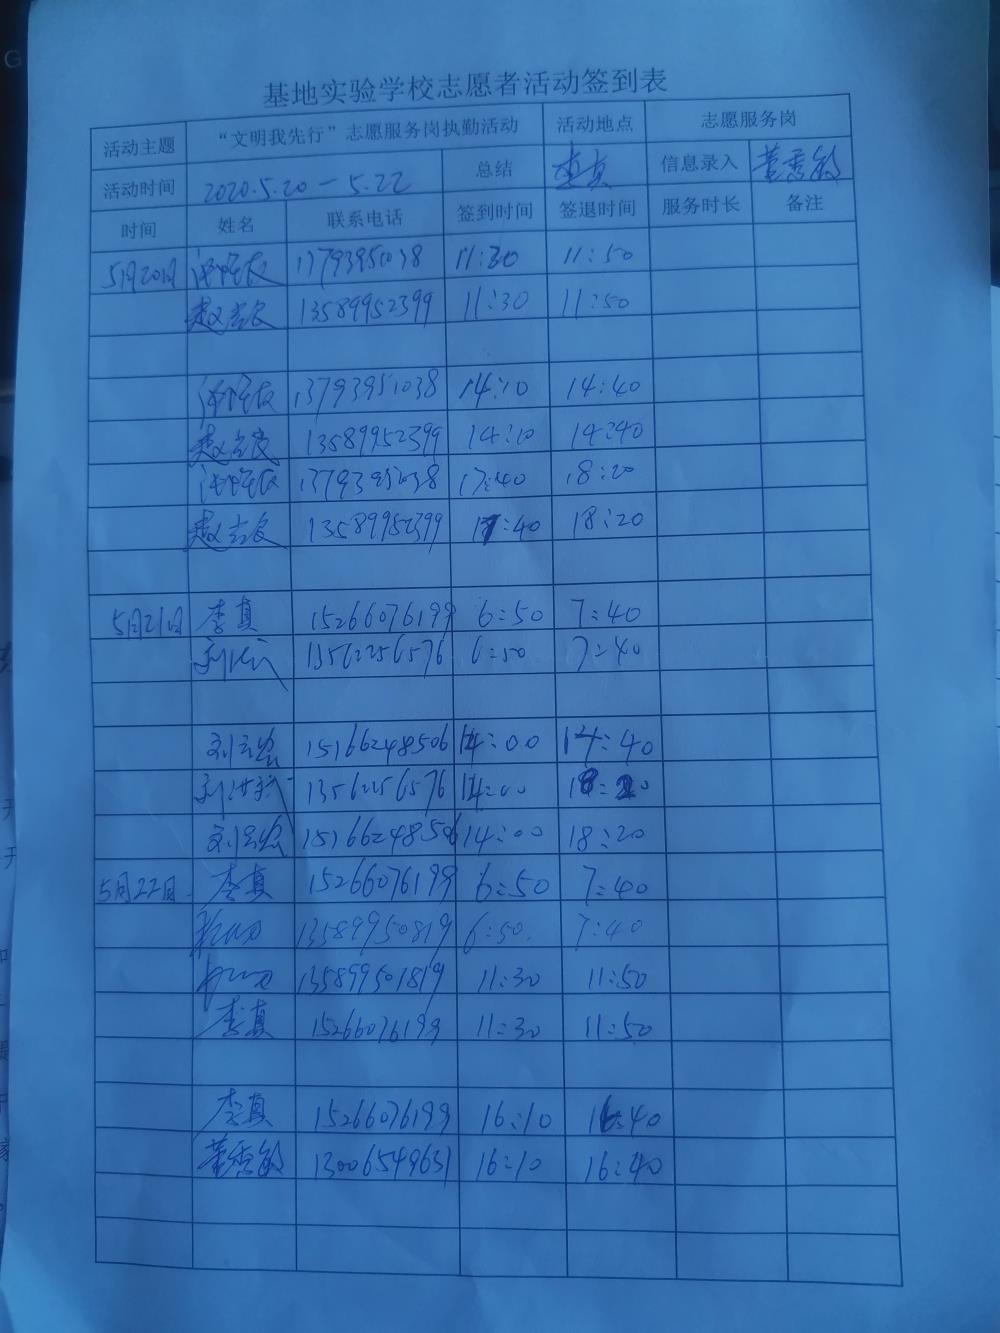 基地实验学校志愿者活动签到表
活动主题 “文明我先行”志愿服务岗执勤活动 活动地点 志愿服务岗
活动时间 2020.5.20－5.22 总结 李真 信息录入 董秀敏
时间 姓名 联系电话 签到时间 签退时间 服务时长 备注
5月20日 13793951038 11:30 11:50
13589952399 11:30 11:50
13793951038 14:10 14:40
13589952399 14:10 14:40
13793951038 17:40 18:20
13589952399 17:40 18:20
5月21日 李真 15266076199 6:50 7:40
13562256576 6:50 7:40
15166248506 14:00 14:40
13562256576 14:00 18:20
15166248506 14:00 18:20
5月22日 李真 15266076199 6:50 7:40
13589950819 6:50 7:40
135899501819 11:30 11:50
李真 15266076199 11:30 11:50
李真 15266076199 16:10 16:40
董秀敏 13006549631 16:10 16:40